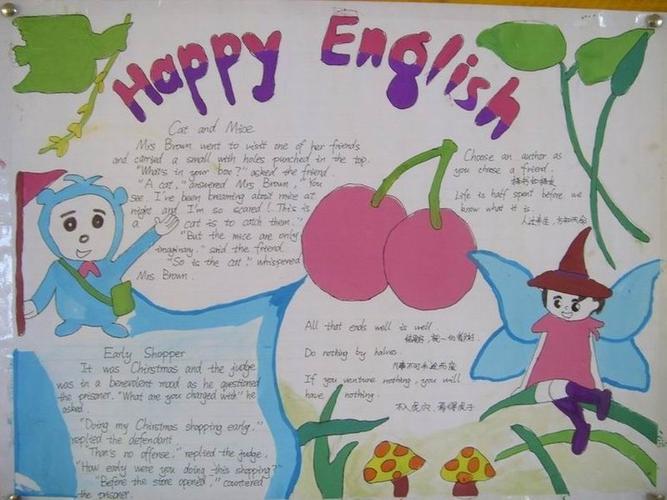 Happy English
Cat and Mice
Mrs Brown went to visit one of her friends
and carried a small with holes punched in the top.
"What's in your box?" asked the friend.
"A cat," answered Mrs Brown, "You
see I've been dreaming about mice at
night and I'm so scared! This is
a cat is to catch them."
"But the mice are only
imaginary." said the friend.
"So is the cat." whispered
Mrs Brown.
Choose an author as
you choose a friend.
Life is half spent before we
know what it is.
All that ends well is well
Do nothing by halves.
If you venture nothing, you will
have nothing.
不入虎穴，焉得虎子
Early Shopper
It was Chirstmas and the judge
was in a benevolent mood as he questioned
the prisoner. "What are you charged with" he
asked.
"Doing my Chirstmas shopping early,"
replied the defendant.
"That's no offense." replied the judge.
"How early were you doing this shopping?"
"Before the store opened," countered
the prisoner.